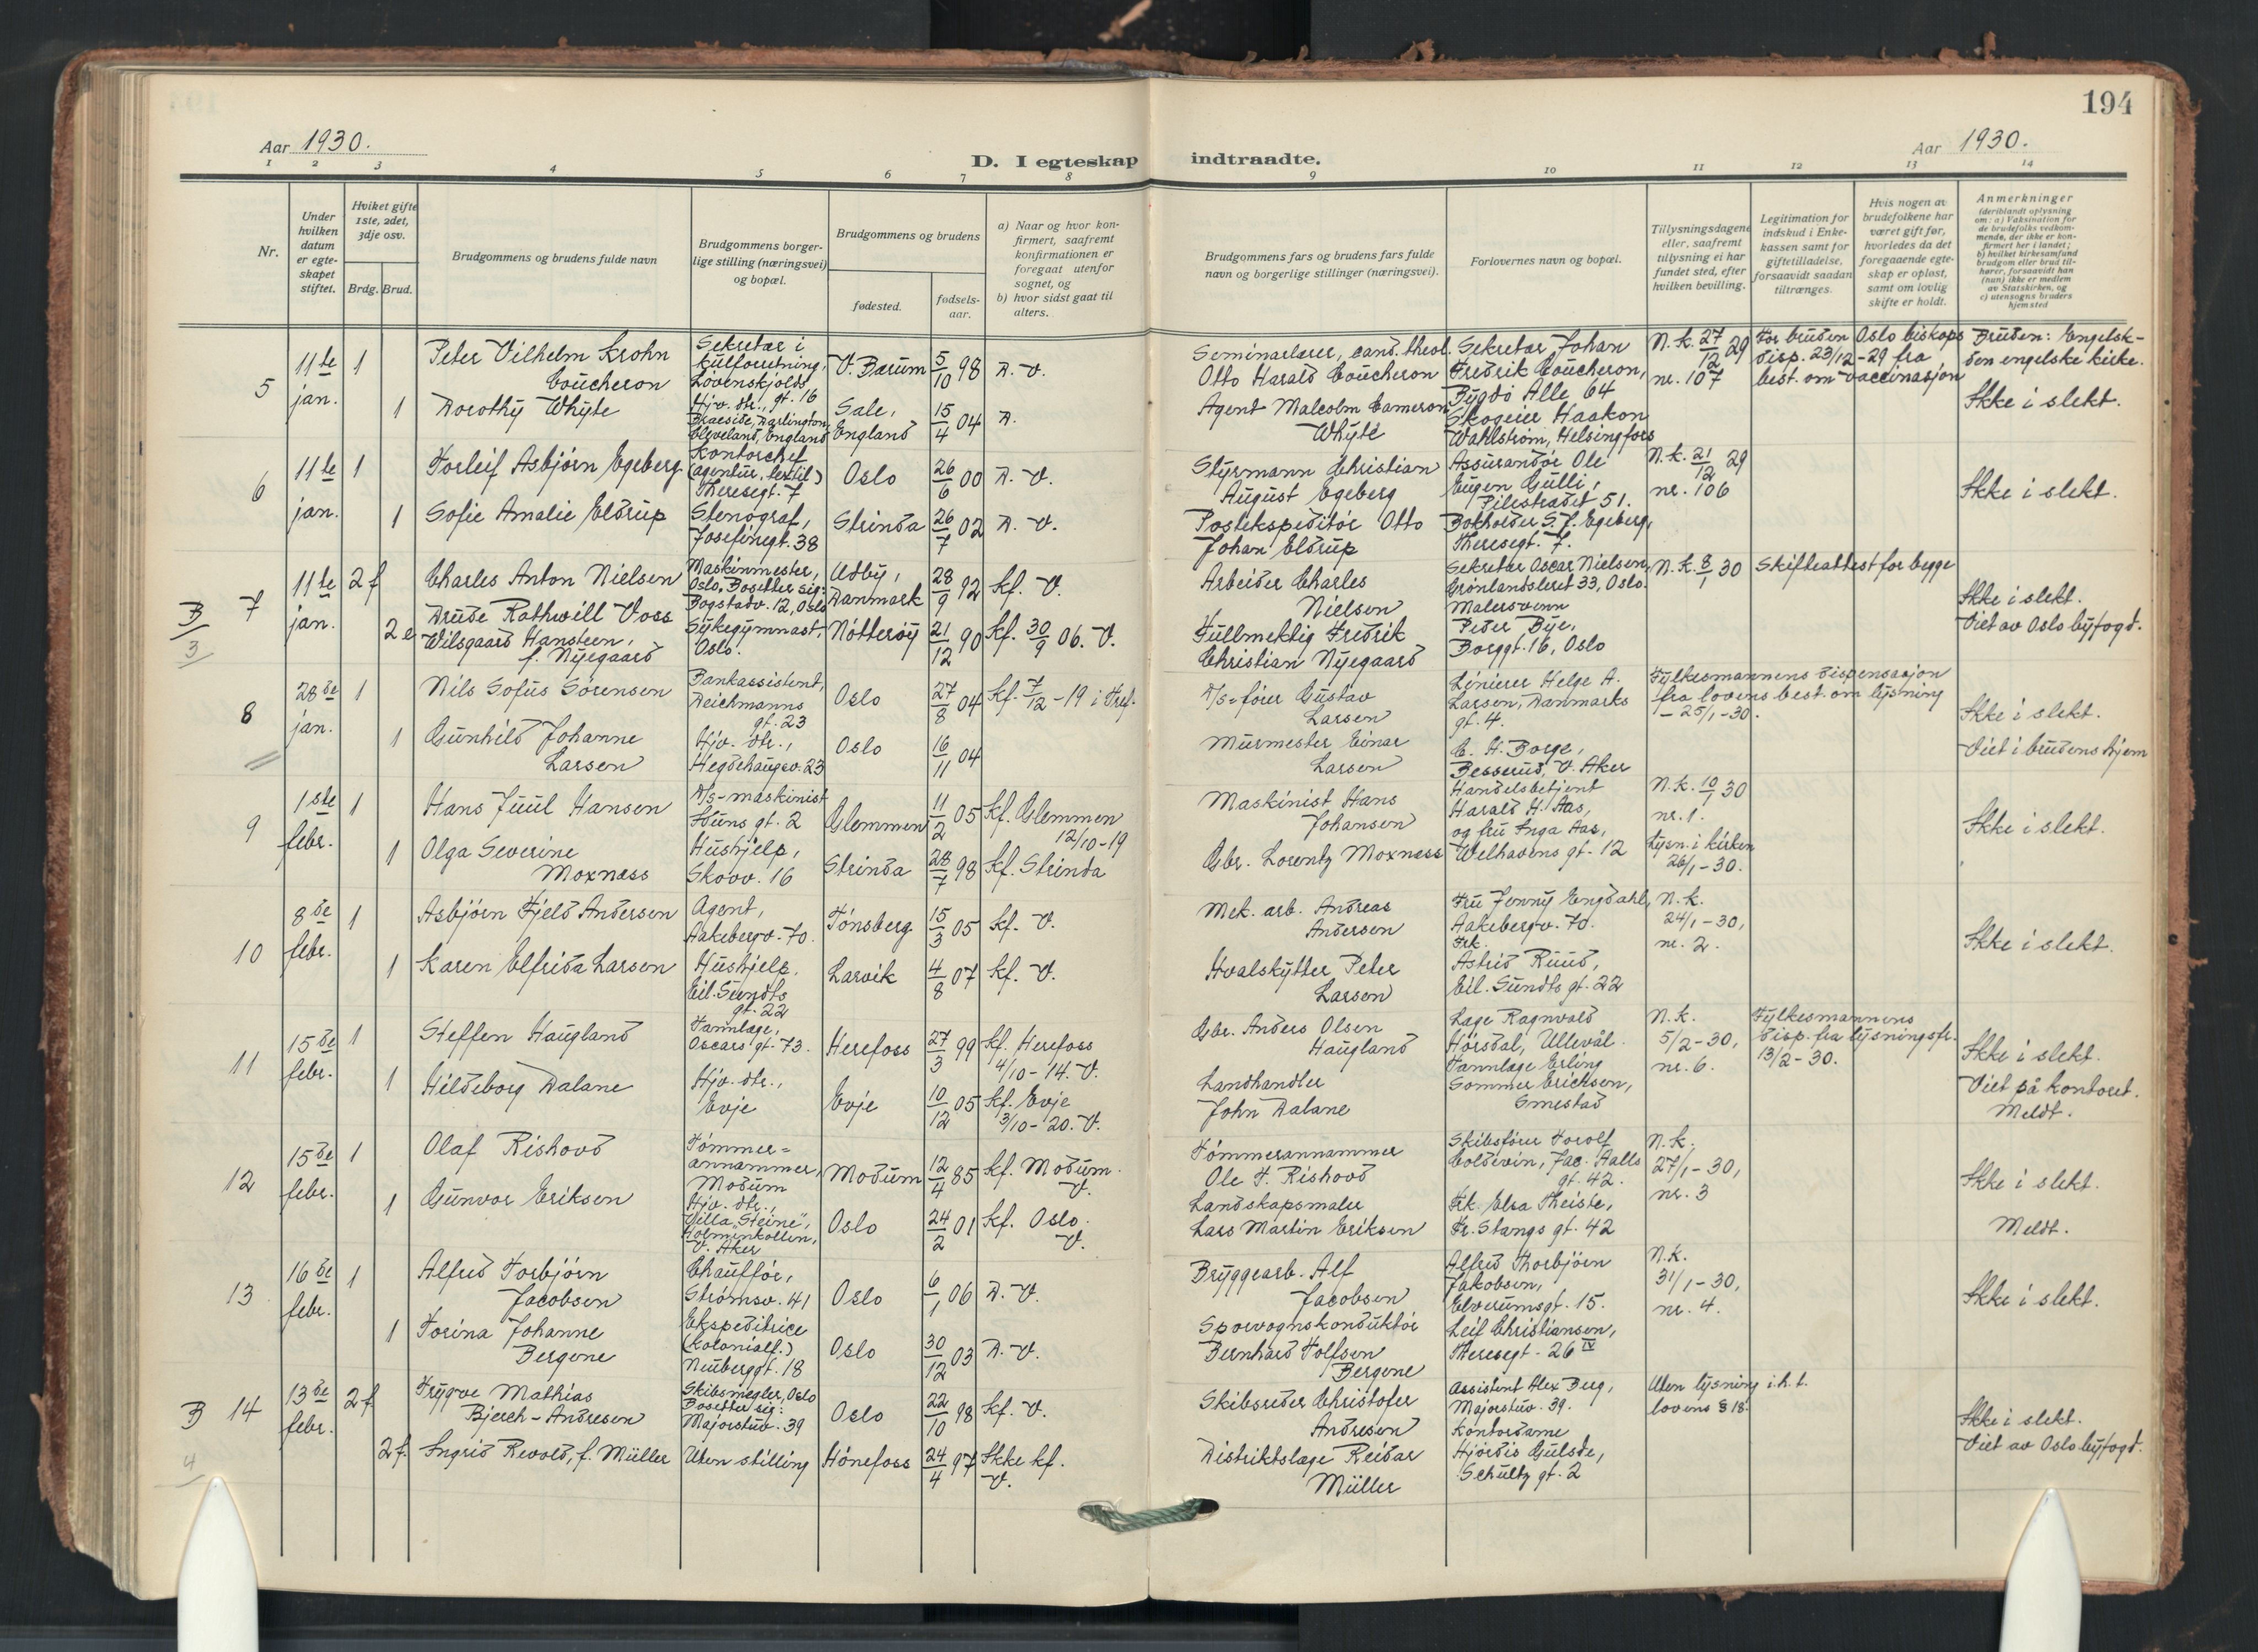 194
Aar 1930.
D. I egteskap indtraadte.
Aar 1930.
1 2 3 4 5 6 7 8 9 10 11 12 13 14
Nr.
Under hvilken datum er egteskapet stiftet.
Hviket gifte 1ste, 2det, 3dje osv.
Brdg. Brud.
Brudgommens og brudens fulde navn
Brudgommens borgerlige stilling (næringsvei) og bopæl.
Brudgommens og brudens
fødested.
fødselsaar.
a) Naar og hvor konfirmert, saafremt konfirmationen er foregaat utenfor sognet, og
b) hvor sidst gaat til alters.
Brudgommens fars og brudens fars fulde navn og borgerlige stillinger (næringsvei).
Forlovernes navn og bopæl.
Tillysningsdagene eller, saafremt tillysning ei har fundet sted, efter hvilken bevilling.
Legitimation for indskud i Enkekassen samt for giftetilladelse, forsaavidt saadan tiltrænges.
Hvis nogen av brudefolkene har været gift før, hvorledes da det foregaaende egteskap er opløst, samt om lovlig skifte er holdt.
Anmerkninger
(deriblandt oplysning om: a) Vaksination for de brudefolks vedkommende, der ikke er konfirmert her i landet; b) hvilket kirkesamfund brudgom eller brud tilhører, forsaavidt han (hun) ikke er medlem av Statskirken, og c) utensogns bruders hjemsted
5
11te jan.
1
Peter Vilhelm Krohn
Coucheron
Sekretær i
kulforretning,
Løvenskjolds
gt. 16
V. Bærum
5/10 98
D. V.
Seminarlærer, cand. theol.
Otto Harald Coucheron
Sekretær Johan
Fredrik Coucheron,
Bygdø Alle 64
N.k. 27/12 29
nr. 107
For bruden Oslo biskops
disp. 23/12-29 fra
best. om vaccinasjon
Bruden: Engelsk-
den engelske kirke.
Ikke i slekt.
1
Dorothy Whyte
Hjv. dtr.,
Braeside, Darlington,
Cleveland, England
Sale,
England
15/4 04
D.
Agent Malcolm Cameron
Whyte
Skogeier Haakon
Wahlstrøm, Helsingfors
6
11te jan.
1
Torleif Asbjørn Egeberg
Kontorchef
(agentur, textil)
Theresegt. 7
Oslo
26/6 00
D. V.
Styrmann Christian
August Egeberg
Assurandør Ole
Eugen Gulli,
Pilestrædet 51.
N.k. 21/12 29
nr. 106
Ikke i slekt.
1
Sofie Amalie Eldrup
Stenograf,
Josefinegt. 38
Strinda
26/7 02
D. V.
Postekspeditør Otto
Johan Eldrup
Bokholder S. J. Egeberg,
Theresegt. 7.
B/3
3
7
11te jan.
2 f
Charles Anton Nielsen
Maskinmester,
Oslo. Bosetter sig:
Bogstadv. 12, Oslo
Udby,
Danmark
28/9 92
Kf. V.
Arbeider Charles
Nielsen
Sekretær Oscar Nielsen,
Grønlandsleret 33, Oslo.
N.k. 8/1 30
Skifteattest for begge
Ikke i slekt.
Viet av Oslo byfogd.
2 e
Drude Rathwill Voss
Wilsgaard Hansteen,
f. Nyegaard
Sykegymnast,
Oslo.
Nøtterøy
21/12 90
Kf. 30/9 06. V.
Fullmektig Fredrik
Christian Nyegaard
Malersvenn
Peder Bye,
Borggt. 16, Oslo
8
28de jan.
1
Nils Sofus Sørensen
Bankassistent,
Deichmanns
gt. 23
Oslo
27/8 04
Kf. 7/12-19 i Tref.
D/s-fører Gustav
Larsen
Linierer Helge A.
Larsen, Danmarks
gt. 4.
Fylkesmannens dispensasjon
fra lovens best. om lysning
- 25/1-30.
Ikke i slekt.
Viet i brudens hjem
1
Gunhild Johanne
Larsen
Hjv. dtr.,
Hegdehaugsv. 23
Oslo
16/11 04
Murmester Einar
Larsen
C. H. Borge,
Besserud, V. Aker
9
1ste febr.
1
Hans Juul Hansen
D/s-maskinist
Iduns gt. 2
Glemmen
11/2 05
Kf. Glemmen
12/10-19
Maskinist Hans
Johansen
Handelsbetjent
Harald H. Aas,
og fru Inga Aas,
Welhavens gt. 12
N.k. 10/1 30
nr. 1.
Lysn. i kirken
26/1-30.
Ikke i slekt.
1
Olga Severine
Moxness
Hushjelp,
Skovv. 16
Strinda
28/7 98
Kf. Strinda
Gbr. Lorentz Moxness
10
8de febr.
1
Asbjørn Fjeld Andersen
Agent,
Aakebergv. 70.
Tønsberg
15/3 05
Kf. V.
Mek. arb. Andreas
Andersen
Fru Jenny Engdahl,
Aakebergv. 70.
N.k.
24/1-30,
nr. 2.
Ikke i slekt.
1
Karen Elfrida Larsen
Hushjelp,
Eil. Sundts
gt. 22
Larvik
4/8 07
Kf. V.
Hvalskytter Peter
Larsen
Frk.
Astrid Ruud,
Eil. Sundts gt. 22
11
15de febr.
1
Steffen Haugland
Tannlæge,
Oscars gt. 73.
Herefoss
27/3 99
Kf. Herefoss
4/10-14. V.
Gbr. Anders Olsen
Haugland
Læge Ragnvald
Hørsdal, Ullevål.
N.k.
5/2-30,
nr. 6.
Fylkesmannens
disp. fra lysningsfr.
13/2-30.
Ikke i slekt.
Viet på kontoret.
Meldt.
1
Hildeborg Dalane
Hjv. dtr.,
Evje
Evje
10/12 05
Kf. Evje
3/10-20. V.
Landhandler
John Dalane
Tannlæge Erling
Sommer Erichsen,
Smestad
12
15de febr.
1
Olaf Rishovd
Tømmer=
annammer,
Modum
Modum
12/4 85
Kf. Modum.
V.
Tømmerannammer
Ole T. Rishovd
Skibsfører Torolf
Coldevin, Jac. Aalls
gt. 42.
N.k.
27/1-30,
nr. 3
Ikke i slekt.
Meldt.
1
Gunvor Eriksen
Hjv. dtr.,
Villa "Steine",
Holmenkollen,
V. Aker
Oslo
24/2 01
Kf. Oslo.
V.
Landskapsmaler
Lars Martin Eriksen
Frk. Elsa Theiste,
Fr. Stangs gt. 42
13
16de febr.
1
Alfred Torbjørn
Jacobsen
Chauffør,
Strømsv. 41
Oslo
6/1 06
D. V.
Bryggearb. Alf
Jacobsen
Alfred Thorbjørn
Jakobsen,
Elverumsgt. 15.
N.k.
31/1-30,
nr. 4.
Ikke i slekt.
1
Torina Johanne
Bergene
Ekspeditrice
(Kolonialf.)
Neuberggt. 18
Oslo
30/12 03
D. V.
Sporvognskonduktør
Bernhard Tolfsen
Bergene
Leif Christiansen,
Theresegt. 26 IV
B
4
14
13de febr.
2 f
Trygve Mathias
Bjerch-Andresen
Skibsmegler, Oslo
Bosetter sig:
Majorstuv. 39
Oslo
22/10 98
Kf. V.
Skibsreder Christofer
Andresen
Assistent Alex Berg,
Majorstuv. 39.
Uten lysning i.h.t.
lovens § 18.
Ikke i slekt.
Viet av Oslo byfogd.
2 f.
Ingrid Revold, f. Müller
Uten stilling
Hønefoss
24/4 97
Ikke kf.
V.
Distriktslæge Reidar
Müller
Kontordame
Hjørdis Gulsde,
Schultz gt. 2